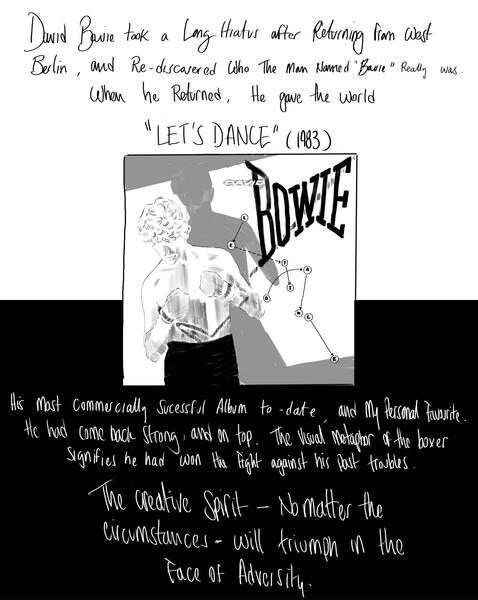 David Bowie took a Long Hiatus after Returning from West
Berlin, and Re-discovered Who The Man Named "Bowie" Really was.
When he Returned, He gave the world
"LET'S DANCE" (1983)
DAVID
BOWIE
L
E
T
S
D
A
N
C
E
His Most Commercially Sucessful Album to-date, and My Personal Favourite.
He had come back Strong, and on top. The Visual Metaphor of the boxer
Signifies he had won the Fight against his Past troubles.
The Creative Spirit - No matter the
circumstances - will triumph in the
Face of Adversity.